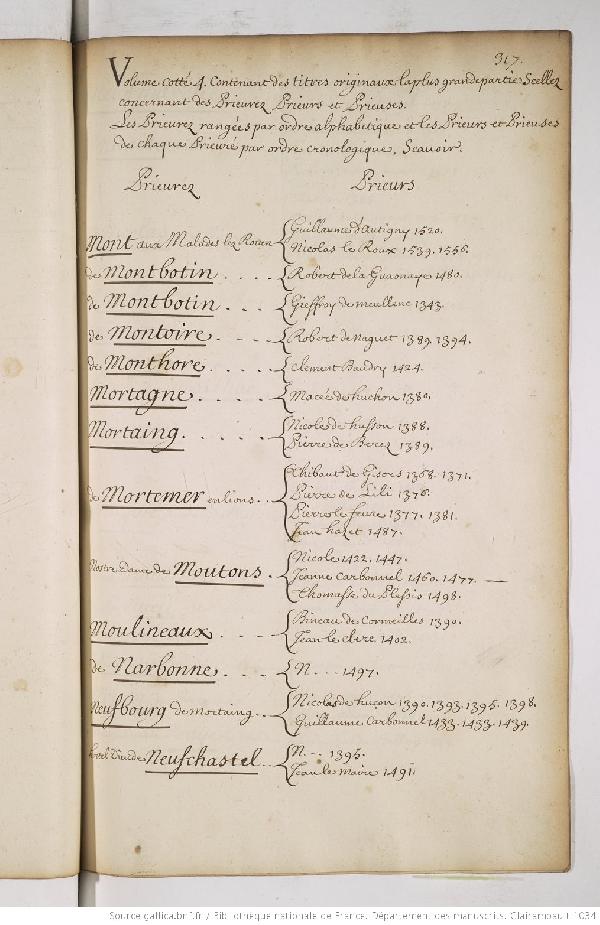 317.
Volume cotté 4. Contenant des titres originaux la plus grande partie Scellez
concernant des Prieurez Prieurs et Prieuses.
Les Prieurez rangées par ordre alphabetique et les Prieurs et Prieuses
de chaque Prieuré par ordre cronologique. Scauoir.
Prieurez Prieurs
Mont aux Malades lez Rouen { Guillaume d'Autigny 1520.
Nicolas le Roux 1539. 1556.
de Montbotin . . . . { Robert de la 1480.
de Montbotin . . . { Gieffroy de meullenc 1343.
de Montoire . . . . { Robert de naguet 1389. 1394.
de Monthore . . . . { Clement Baudry 1424.
Mortagne . . . . { Macée de huchon 1380.
Mortaing . . . . . { Nicole de husson 1388.
Pierre de 1389.
de Mortemer en lions . . { Thibaut de Gisors 1368. 1371.
Pierre de Lili 1376.
Pierre le feure 1377. 1381.
Jean 1487.
Nostre Dame de Moutons . { Nicole 1422. 1447.
Jeanne Carbonnel 1460. 1477.
Thomasse du Plessis 1498.
Moulineaux . - - - { Bineau de Cormeilles 1390.
Jean le 1402.
de Narbonne . . . . { N. - - - 1497.
Neufbourg de Mortaing . . { Nicolas de huçon 1390. 1393. 1395. 1398.
Guillaume Carbonnel 1433. 1433. 1439.
de Neufchastel . . { N. - - - 1395.
Jean le Maire 1491.
Source gallica.bnf.fr / Bibliothèque nationale de France. Département des manuscrits. Clairambault 1034